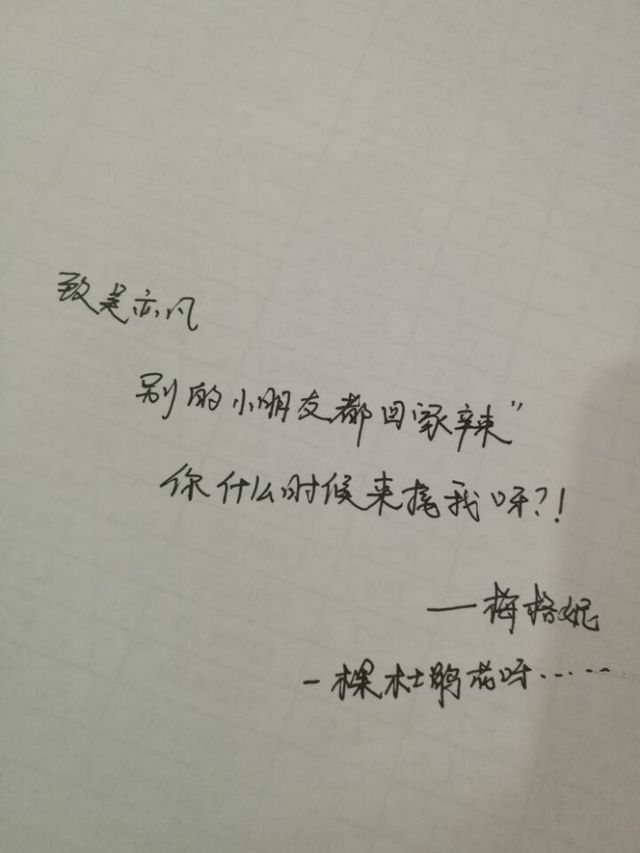 致是亦凡
别的小朋友都回家辣”
你什么时候来接我呀?!
——梅格妮
一棵杜鹃花呀······